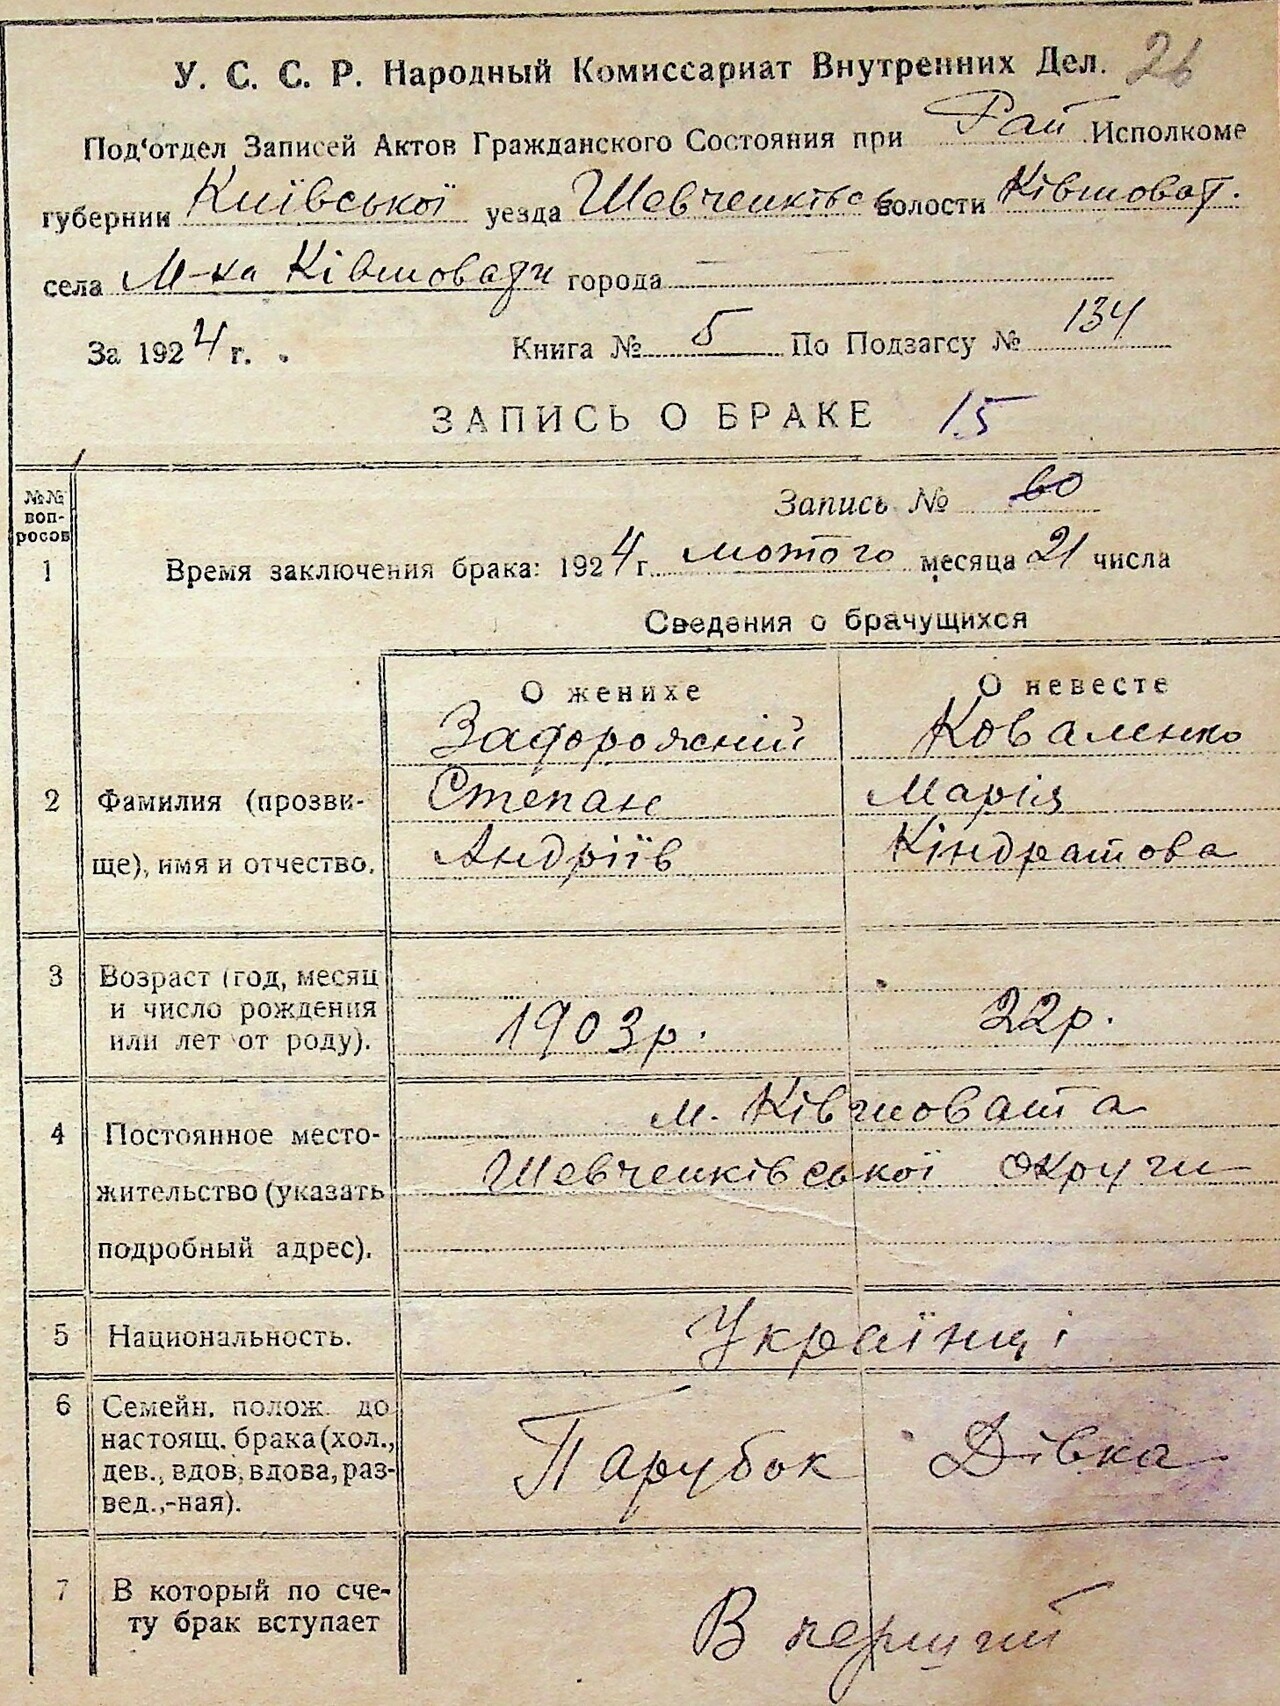 У. С. С. Р. Народный Комиссариат Внутренних Дел. 26
Под'отдел Записей Актов Гражданского Состояния при Рай Исполкоме
губернии Київської уезда Шевченківсь волости Ківшоват.
села М-ка Ківшовати города
За 1924 г. Книга № 5 По Подзагсу № 134
ЗАПИСЬ О БРАКЕ 15
№№ вопросов
Запись № 60
1 Время заключения брака: 1924 г. лютого месяца 21 числа
Сведения о брачущихся
О женихе О невесте
Задорожній Коваленко
2 Фамилия (прозви- Степан Марія
ще), имя и отчество. Андріїв Кіндратова
3 Возраст (год, месяц
и число рождения 1903р. 22р.
или лет от роду).
м. Ківшовата
4 Постоянное место-
жительство (указать Шевченківської округи
подробный адрес).
5 Национальность. Українці
6 Семейн. полож. до
настоящ. брака (хол., Парубок Дівка
дев., вдов, вдова, раз-
вед.,-ная).
7 В который по сче-
ту брак вступает В перший